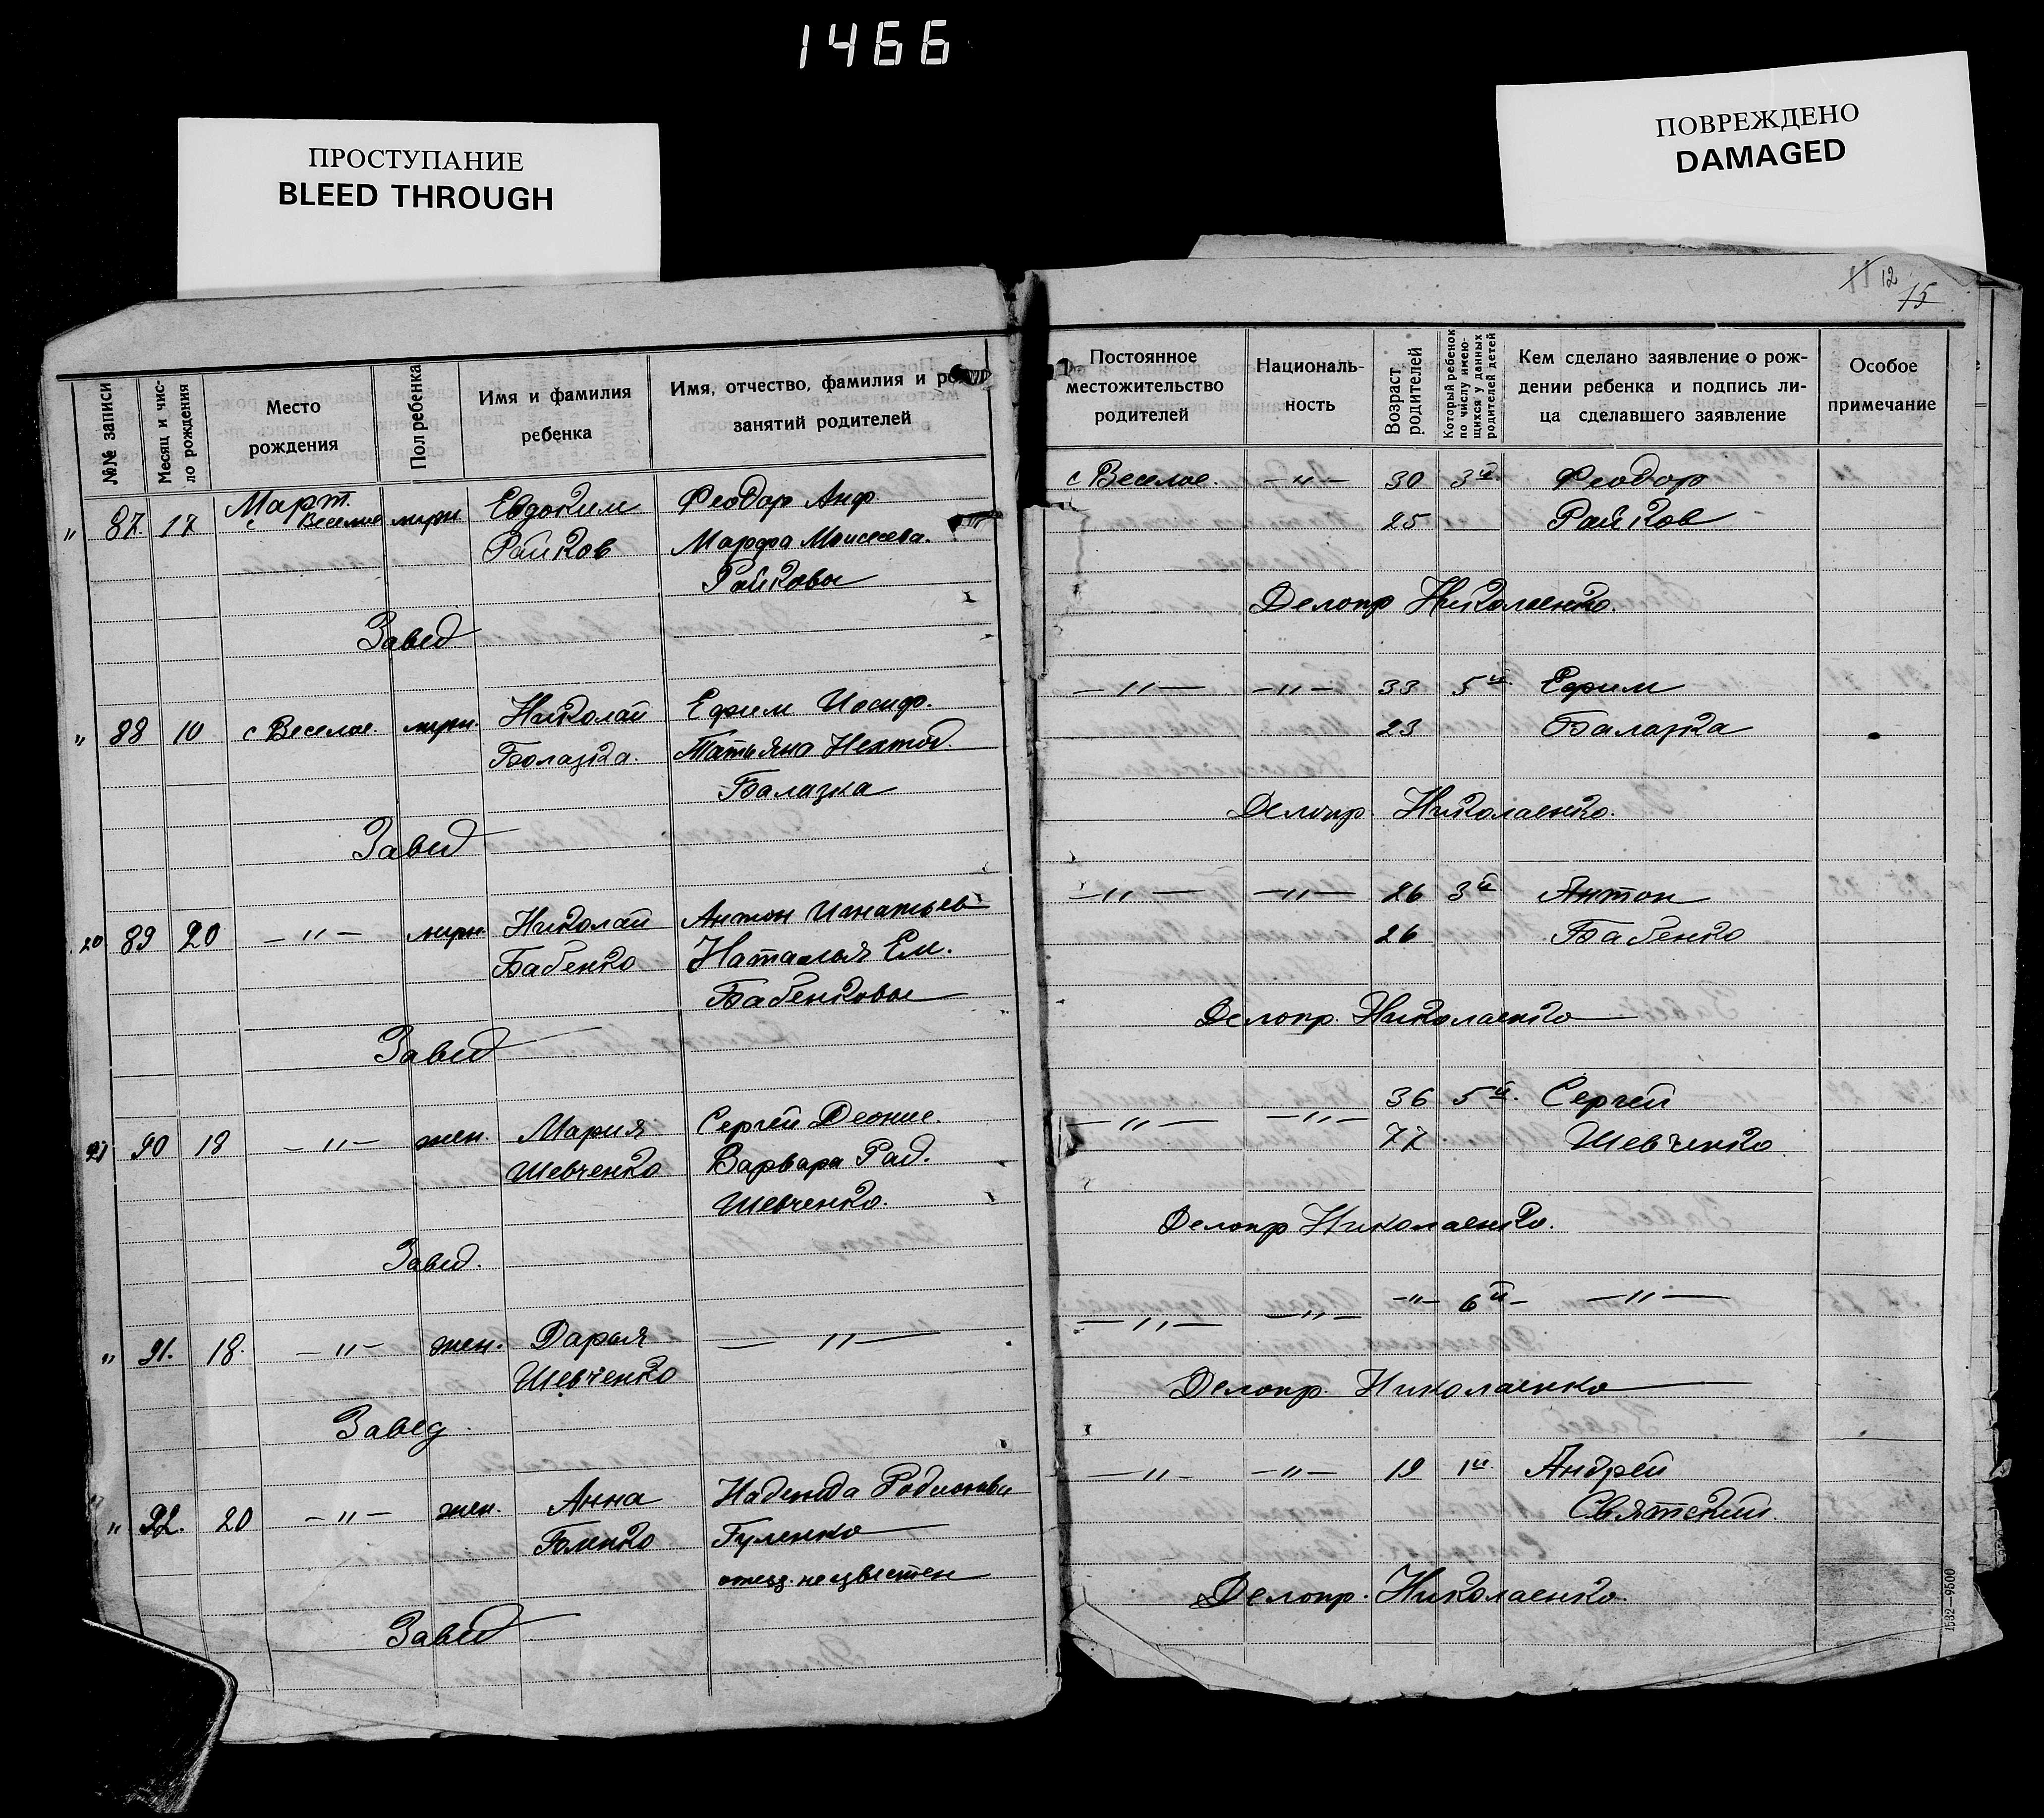 1466
ПРОСТУПАНИЕ
BLEED THROUGH
ПОВРЕЖДЕНО
DAMAGED
12
15
№№ записи
Месяц и чис-
ло рождения
Место
рождения
Пол ребенка
Имя и фамилия
ребенка
Имя, отчество, фамилия и
занятий родителей
Март.
" 87. 17 с Веселое Евдоким Феодор Анф
Райков Марфа Моисеева.
Райковы
Завед
" 88 10 с Веселое Николай Ефим Иосиф.
Балазка. Татьяна
Балазка
Завед
20 89 20 —"— Николай Антон Игнатьев
Бабенко Наталья Ем.
Бабенковы
Завед
21 90 18 —"— жен. Мария Сергей
Шевченко Варвара Рад.
Шевченко.
Завед.
" 91. 18. —"— жен. Дарья —"—
Шевченко
Завед.
" 92. 20 —"— жен. Анна Надежда Родионовн
Гуленко
отец неизвестен
Завед
Постоянное
местожительство
родителей
Националь-
ность
Возраст
родителей
Который ребенок
по числу имею-
щихся у данных
родителей детей
Кем сделано заявление о рож-
дении ребенка и подпись ли-
ца сделавшего заявление
Особое
примечание
с Веселое. —"— 30 3й Феодор
25 Райков
Делопр Николаенко.
—"— —"— 33 5й Ефим
23 Балазка
Делопр. Николаенко.
—"— —"— 26 3й Антон
26 Бабенко
Делопр. Николаенко
—"— —"— 36 5й. Сергей
77 Шевченко
Делопр Николаенко.
—"— —"— —"— 6й —"—
Делопр. Николаенко
—"— —"— 19 1й Андрей
Святский
Делопр. Николаенко.
1532—9500